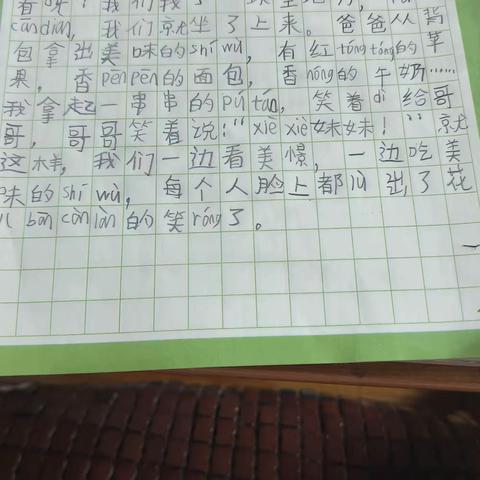 我们
cāndiàn，我们就坐了上来。爸爸从背
包拿出美味的shí wù，有红tóng tóng的苹
果，香pēn pēn的面包，香nóng的牛奶……
我拿起一串串的pú táo，笑着dì给哥
哥，哥哥笑着说：“xiè xiè妹妹！”就
这样，我们一边看美憬，一边吃美
味的shí wù，每个人脸上都lù出了花
儿bān càn làn的笑róng了。